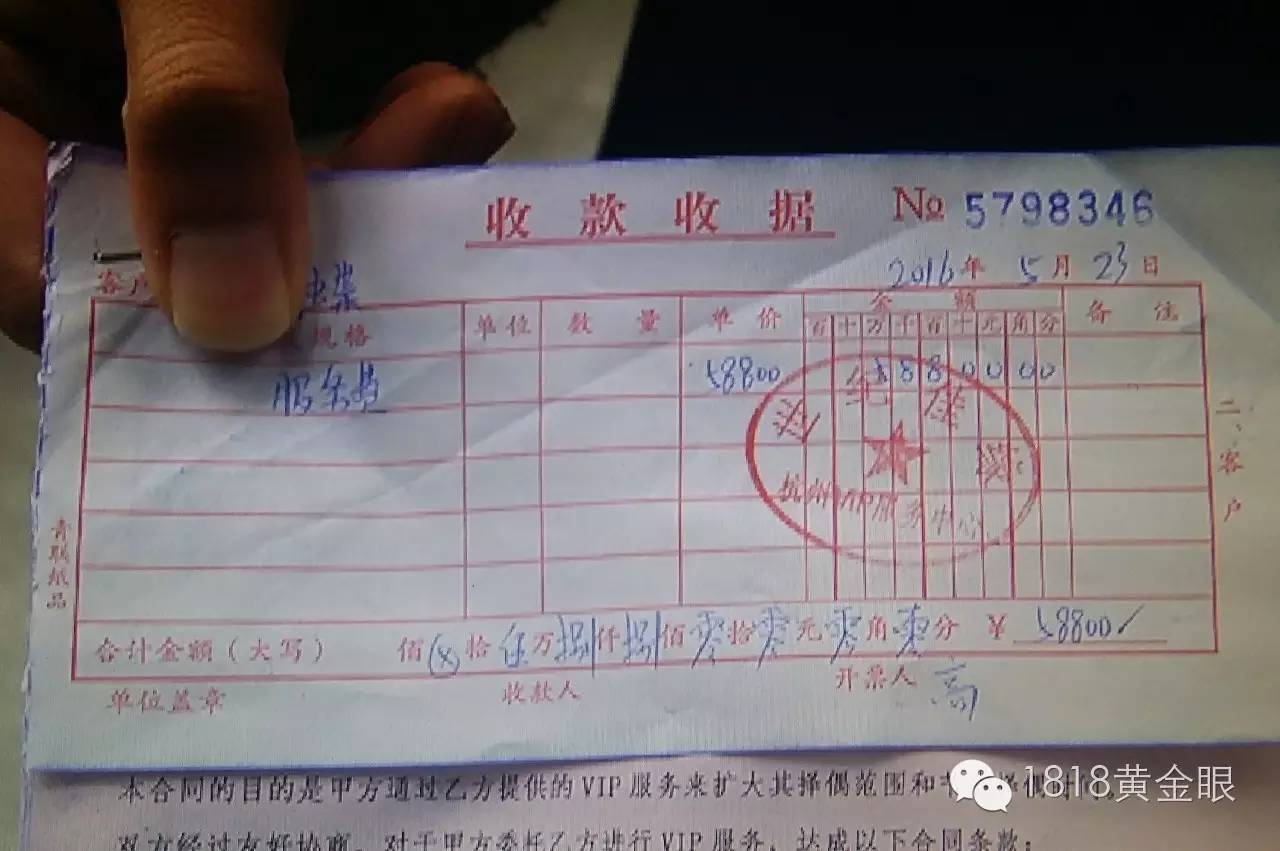 收款收据 No 5798346
2016年5月23日
客户
规格 单位 数量 单价 金额 备注
百十万千百十元角分
服务费 58800 5880000
世纪佳缘
杭州VIP服务中心
二、客户
青联纸品
合计金额（大写） 佰⊗拾伍万捌仟捌佰零拾零元零角零分 ¥ 58800
单位盖章 收款人 开票人 高
本合同的目的是甲方通过乙方提供的VIP服务来扩大其择偶范围和
双方经过友好协商，对于甲方委托乙方进行VIP服务，达成以下合同条款：
1818黄金眼